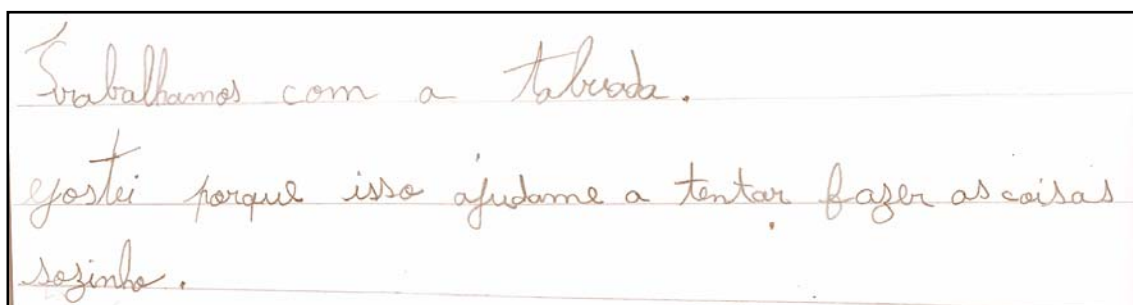 Trabalhamos com a tabuada.
gostei porque isso ajudame a tentar fazer as coisas
sozinho.